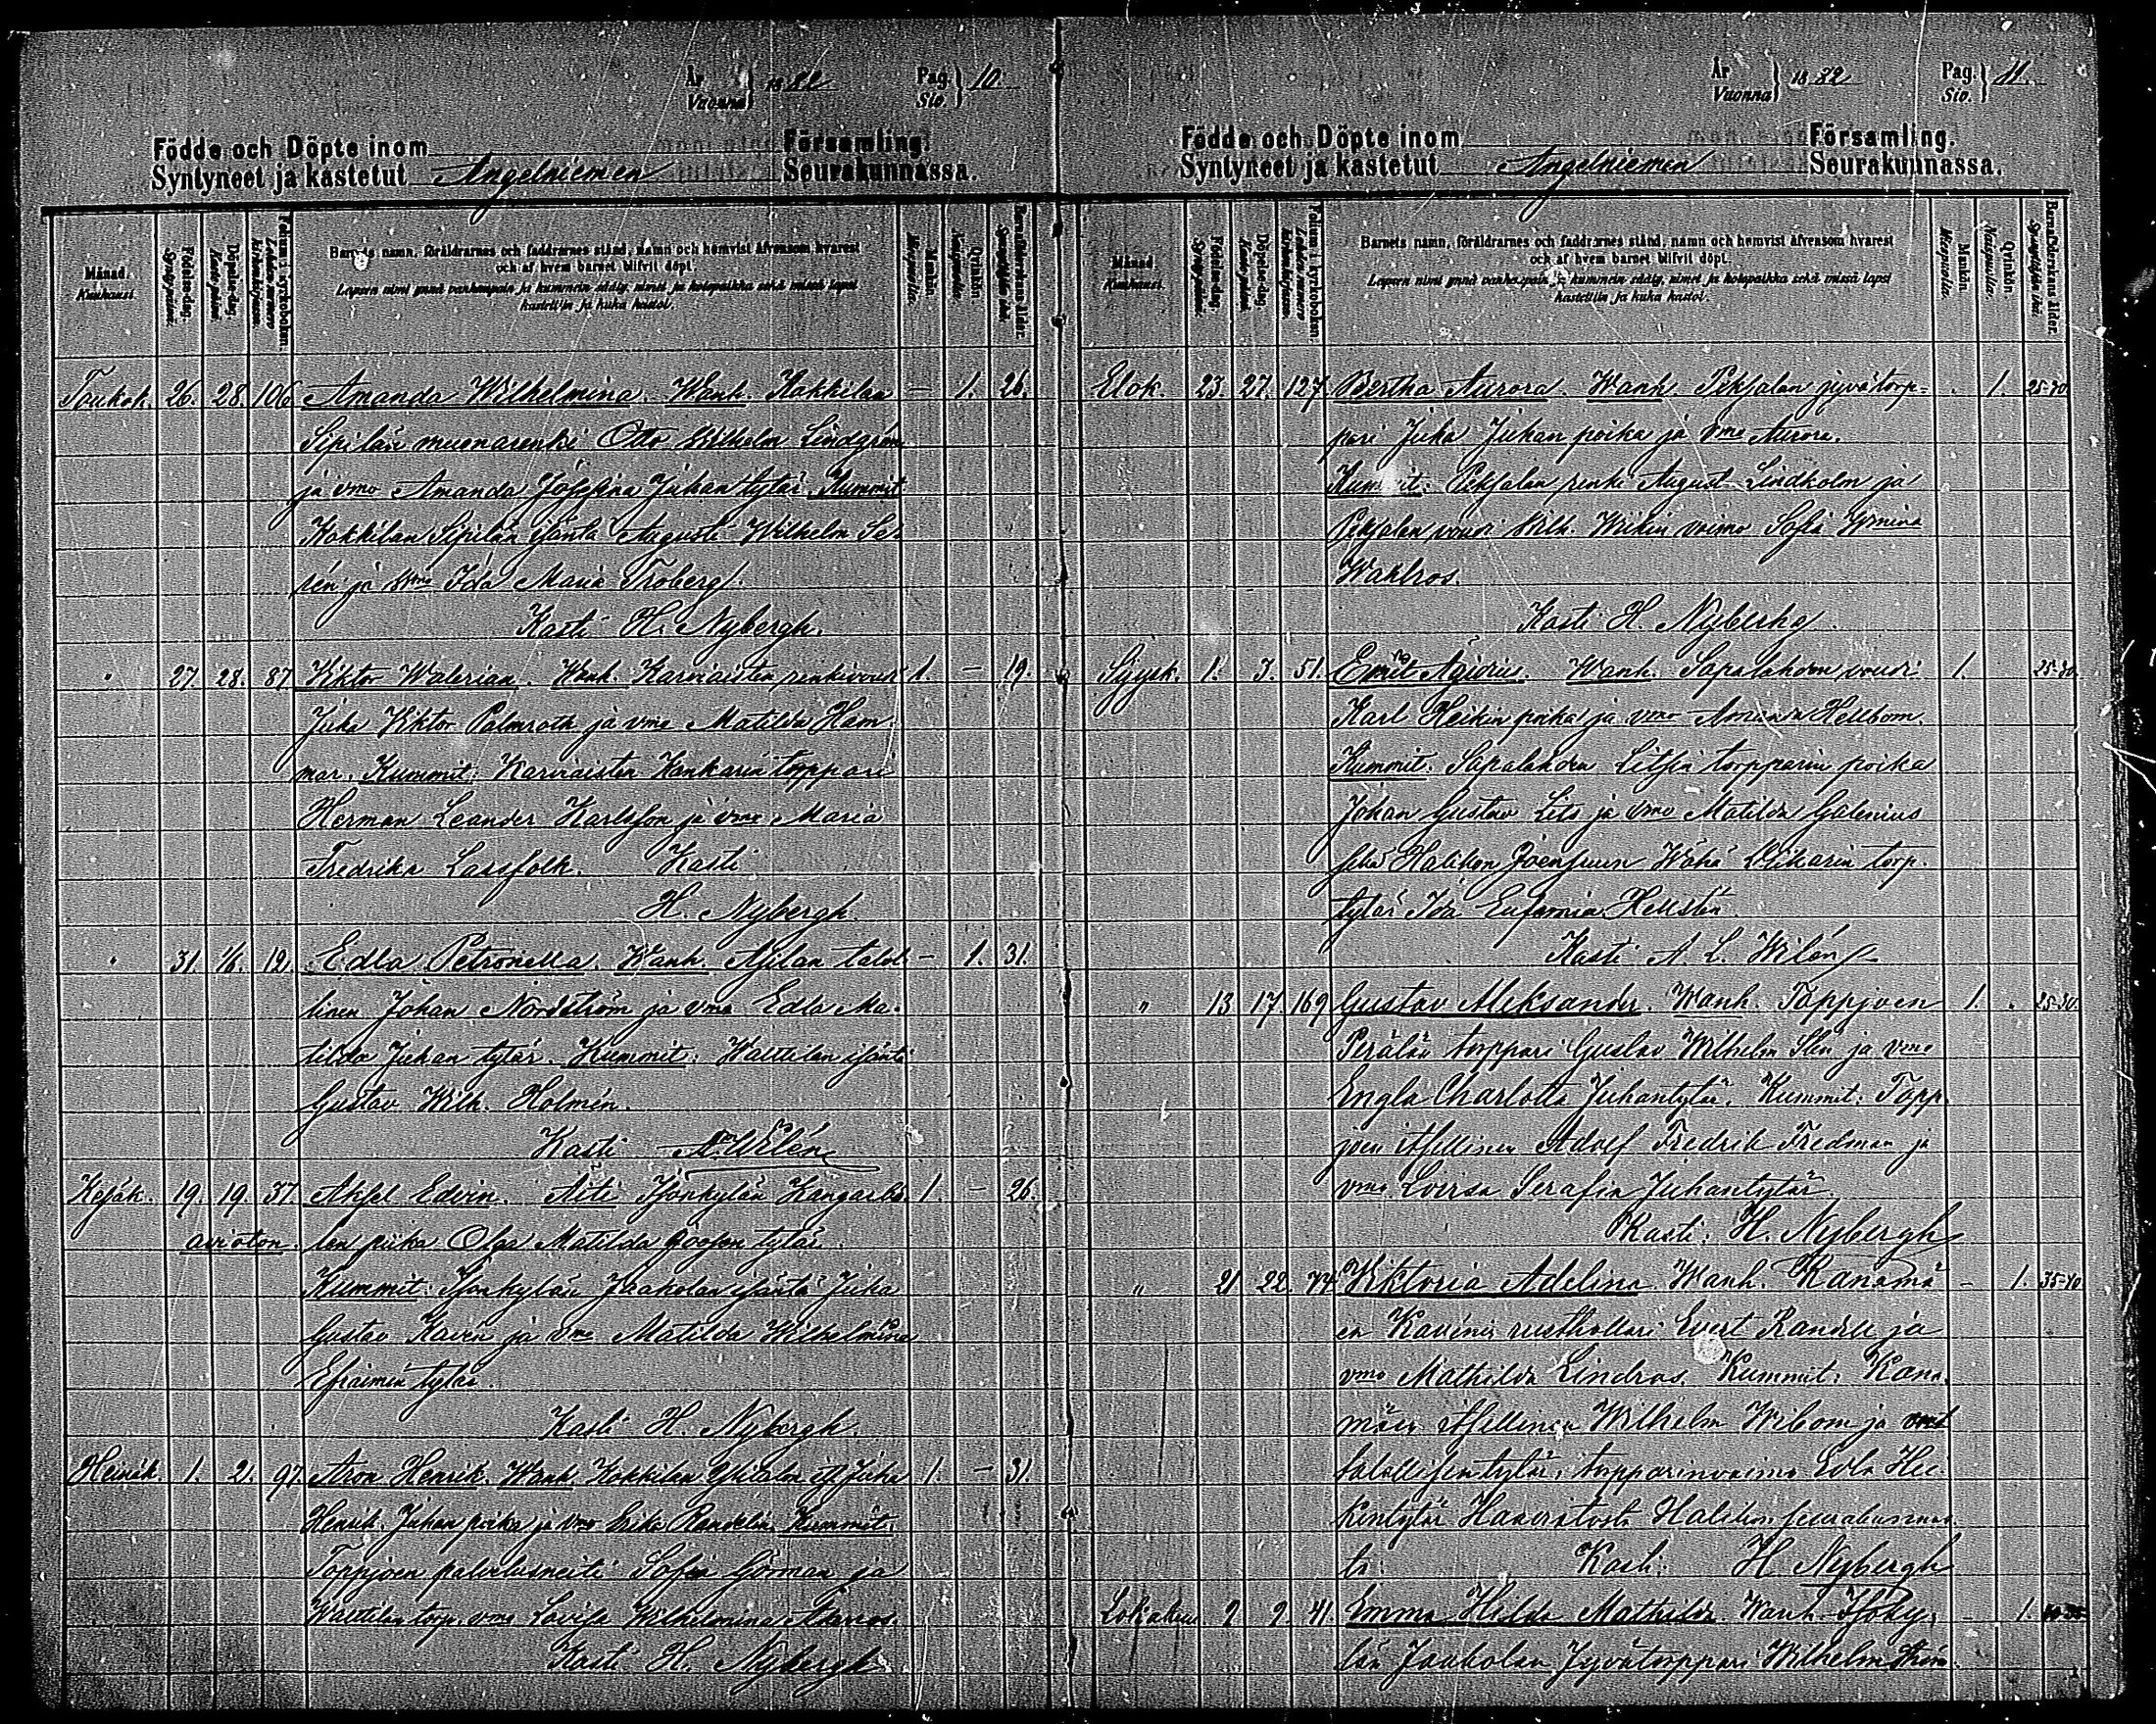 År
Vuonna} 1882 Pag.
Sio.} 10.
Födde och Döpte inom Församling.
Syntyneet ja kastetut Angelniemen Seurakunnassa.
Månad.
Kuukausi.
Födelse-dag.
Syntypäivä.
Döpelse-dag.
Kastepäivä.
Folium i kyrkoboken.
Lehden numero kirkonkirjassa.
Barnets namn, föräldrarnes och faddrarnes stånd, namn och hemvist äfvensom hvarest
och af hvem barnet blifvit döpt.
Lapsen nimi ynnä vanhempain ja kummein sääty, nimet ja kotopaikka sekä missä lapsi
kastettiin ja kuka kastoi.
Mankön.
Miespuolia.
Qvinkön.
Naispuolia.
Barnaföderskans ålder.
Synnyttäjän ikä.
Toukok. 26. 28. 106 Amanda Wilhelmina. Wanh. Kokkilan — 1. 26.
Sipilän muonarenki Otto Wilhelm Lindgren
ja vmo Amanda Josefina Juhan tytär. Kummit
Kokkilan Sipilän isäntä Augusti Wilhelm Se-
rén ja vmo Ida Maria Froberg.
Kasti H. Nybergh.
" 27. 28. 87 Viktor Walerian. Wanh. Karviaisten renkivouti 1. — 19.
Juha Viktor Palmroth ja vmo Matilda Ham-
mar. Kummit: Karviaisten Hankarin torppari
Herman Leander Karlsson ja vmo Maria
Fredrika Lassfolk. Kasti
H. Nybergh.
" 31. 1/6. 12. Edla Petronella. Wanh. Ajilan talol- — 1. 31.
linen Johan Nordström ja vmo Edla Ma-
tilda Juhan tytär. Kummit: Walttilan isäntä
Gustav Wilh. Holmén.
Kasti A. L. Wilén
Kesäk. 19. 19. 37. Aksel Edvin. Äiti Isonkylän 1. — 26.
aviöton. piika Olga Matilda Joosen tytär.
Kummit: Isonkylän Jaakolan isäntä Juha
Gustav Kavén ja vmo Matilda Wilhelmina
Efraimin tytär.
Kasti H. Nybergh.
Heinäk. 1. 2. 97 Aron Henrik. Wanh. Kokkilan Ylitalon is. Juha 1. — 31.
Henrik Juhan poika ja vmo Erika Randelin Kummit:
Toppjoen palvelusneiti Sofia Görman ja
Walttilan torp. vmo Lovisa Wilhelmina
Kasti H. Nybergh
År
Vuonna} 1882 Pag.
Sio.} 11.
Födde och Döpte inom Församling.
Syntyneet ja kastetut Angelniemen Seurakunnassa.
Månad.
Kuukausi.
Födelse-dag.
Syntypäivä.
Döpelse-dag.
Kastepäivä.
Folium i kyrkoboken.
Lehden numero kirkonkirjassa.
Barnets namn, föräldrarnes och faddrarnes stånd, namn och hemvist äfvensom hvarest
och af hvem barnet blifvit döpt.
Lapsen nimi ynnä vanhempain ja kummein sääty, nimet ja kotopaikka sekä missä lapsi
kastettiin ja kuka kastoi.
Mankön.
Miespuolia.
Qvinkön.
Naispuolia.
Barnaföderskans ålder.
Synnyttäjän ikä.
Elok. 23. 27. 127 Bertha Aurora. Wanh. Peksalan jyvätorp- . 1. 25-30
pari Juha Juhan poika ja vmo Aurora.
Kummit: Peksalan renki August Lindholm ja
Peksalan vouti Wilh. Wikin vaimo Sofia
Wahlros.
Kasti H. Nybergh.
Syysk. 1. 3. 51. Emil Agidius. Wanh. Sapalahden vouti 1. 25-30.
Karl Heikin poika ja vmo Amanda Hellbom.
Kummit. Sapalahden Litsin torpparin poika
Johan Gustav Lits ja vmo Matilda Galenius
sekä Halikon Joensuun Wähä torp.
tytär Ida Eufemia Hellstén.
Kasti A. L. Wilén
" 13 17. 169 Gustav Aleksander. Wanh. Toppjoen 1. . 25-30.
Perälän torppari Gustav Wilhelm Slén ja vmo
Engla Charlotta Juhantytär. Kummit: Topp-
joen itsellinen Adolf Fredrik Fredman ja
vmo Lovisa Serafia Juhantytär.
Kasti: H. Nybergh
" 21 22. 74 Viktoria Adelina. Wanh. Kanamä- — 1. 35-40
en Kavénin rusthollari Evert Randell ja
vmo Mathilda Lindros. Kummit: Kana-
mäen itsellinen Wilhelm Wibom ja
talollisen tytär, torpparinvaimo Edla Hei-
kintytär Halikon seurakunnas-
ta: Kasti: H. Nybergh
Lokakuu. 2 9. 41. Emma Hilda Mathilda. Wanh. Isoky- — 1.
län Jaakolan Jyvätorppari Wilhelm